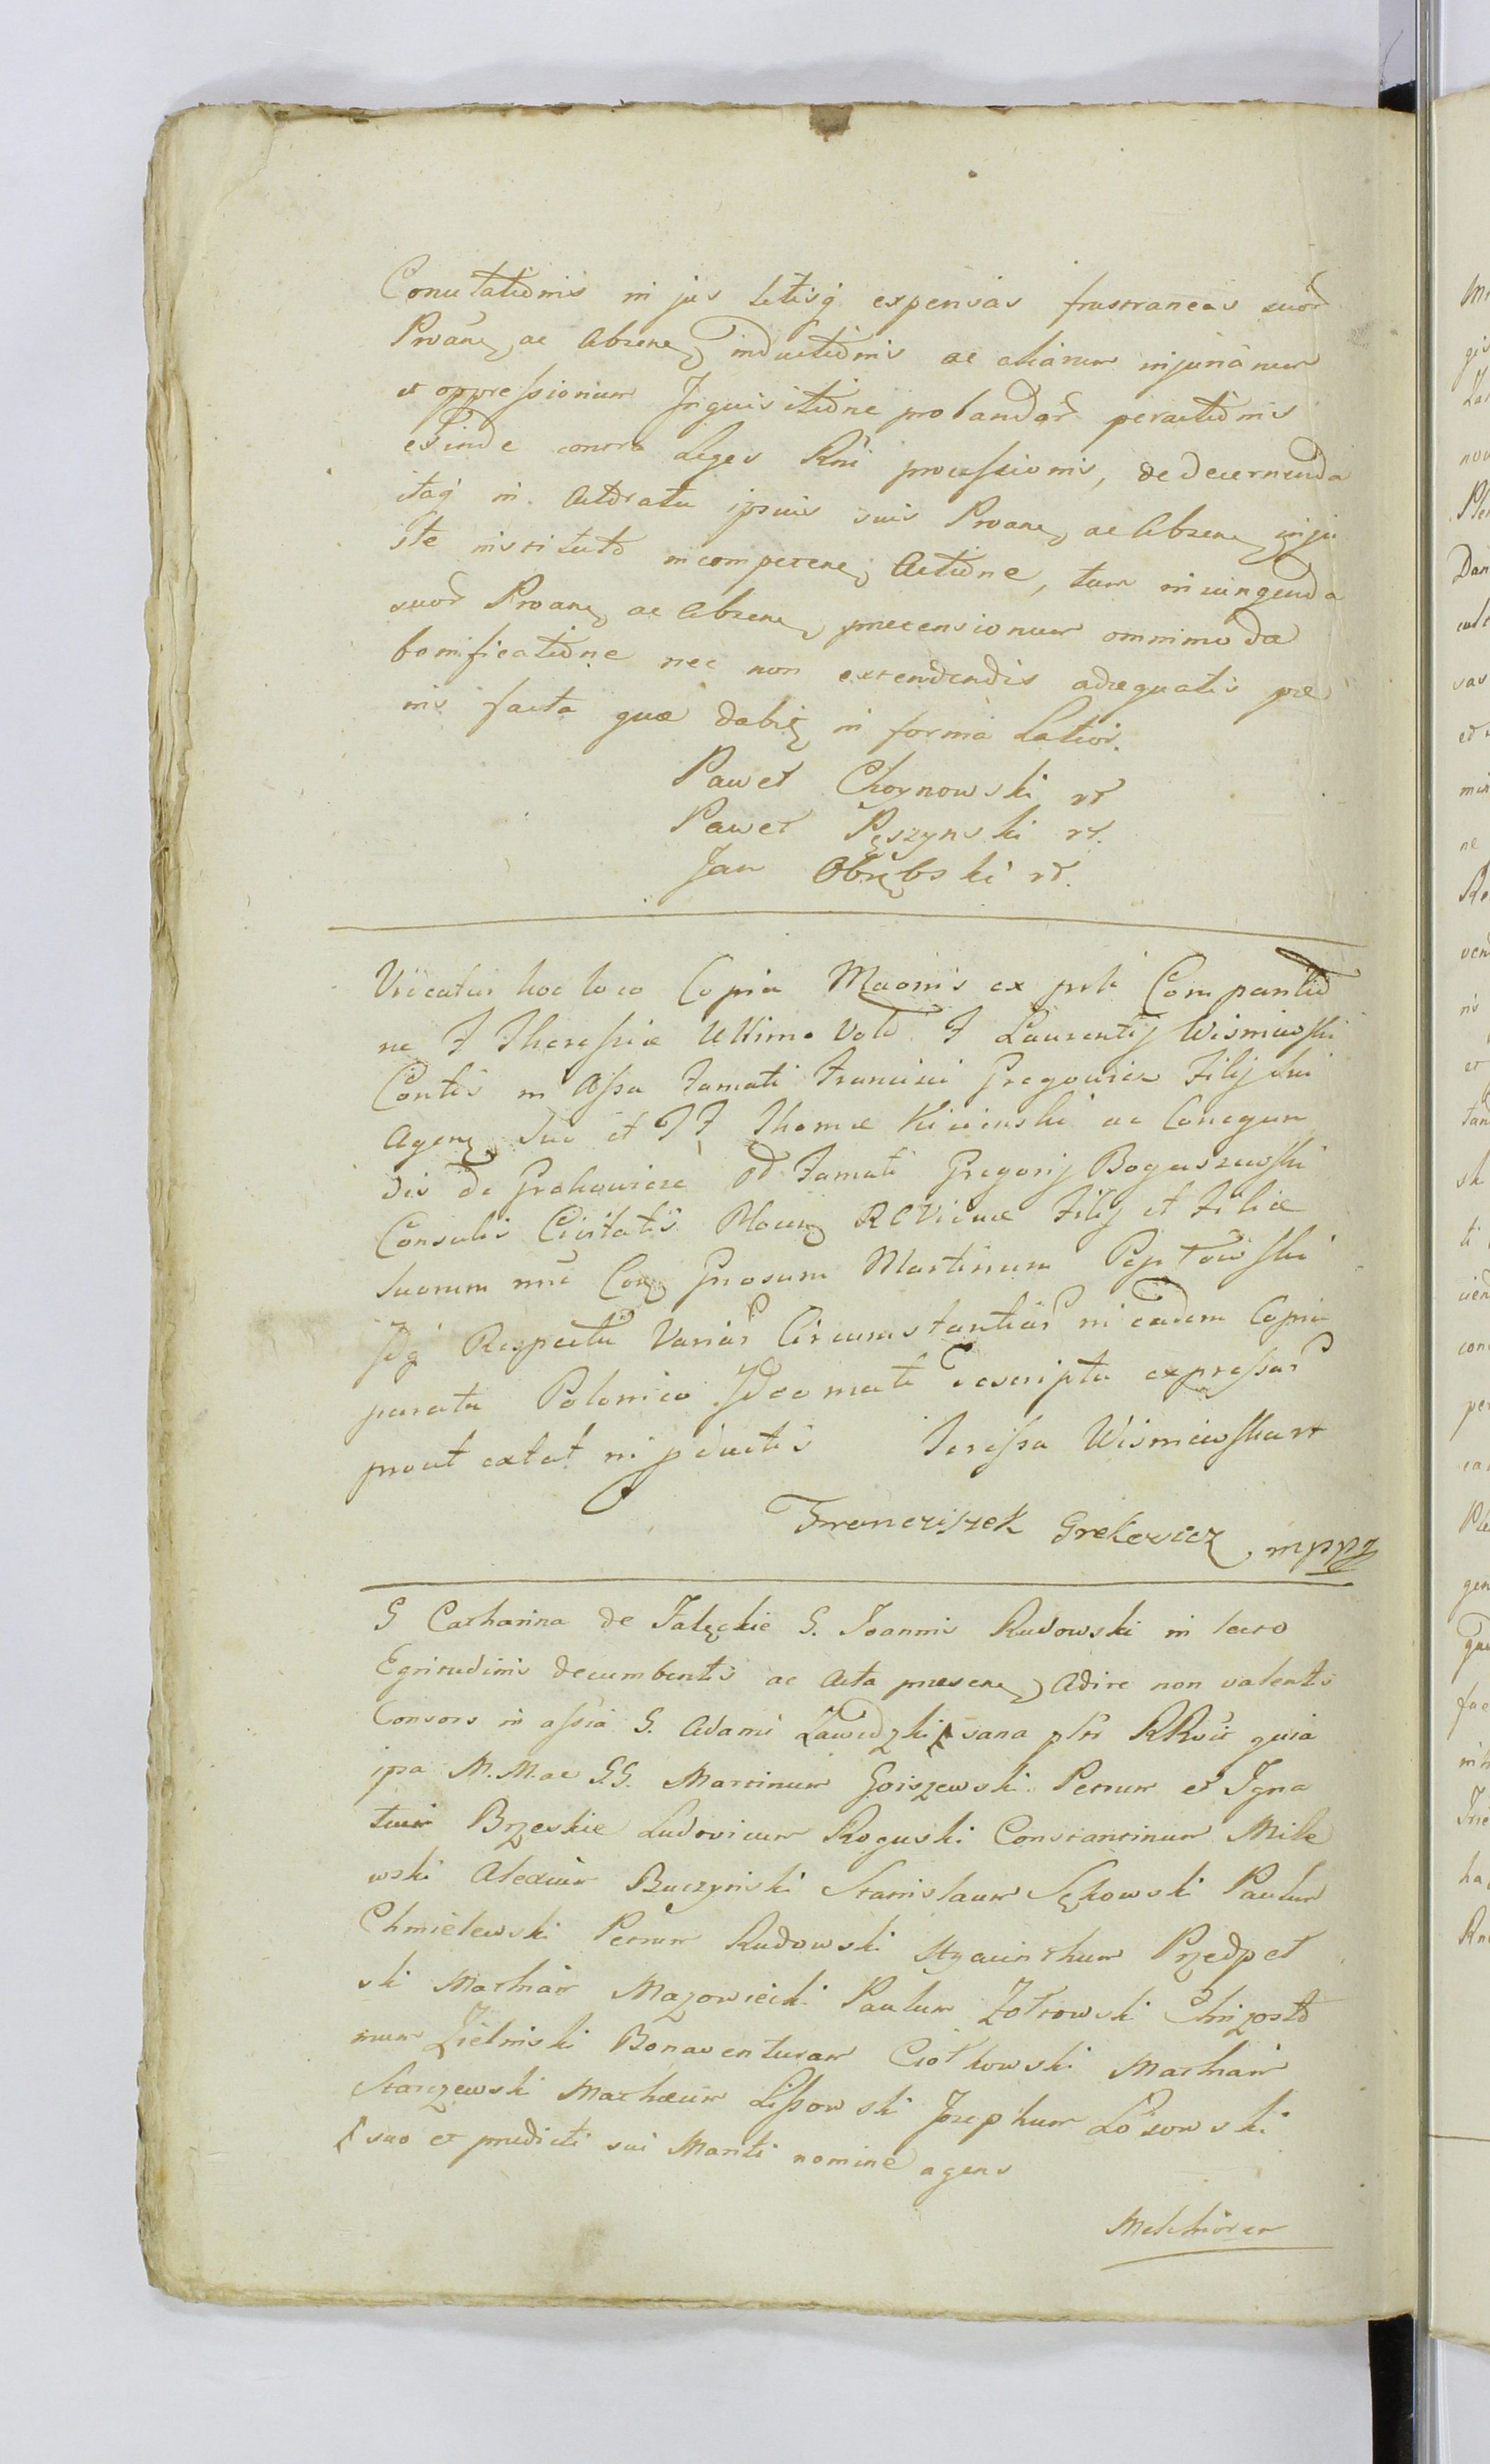 Conutationis in jus Litisq expensas frustraneas suor
Proane ac Absene inductionis ac aliarum injuriarum
et oppressionum Inquisitione probandar peractionis
exinde contra Leges Rni processionis, de decernenda
itaq in Attdratu ipsius suis Proane ac Absene inju
ste instituto incompetene Actione, tum injungenda
suor Proane ac Absene prætensionum omnimoda
bonificatione nec non extendendis adæquatis pæ
nis facta quæ dabie in forma Latiori.
Paweł Choynowski rt
Paweł Pęszynski rt.
Jan Obrębski rt.
Uricatur hoc loco Copia Maonis ex prti Comparitio
ne F Theressiæ Ultimo Voto F Laurentij Wisniewski
Contis in Assa Famati Francisci Gregowicz Filij sui
Agene suo et FF Thomæ Kicinski ac Conegun
dis de Grakowicze Famati Gregorij Boguszewski
Consulis Civitatis Plocen Filij et Filiæ
suorum nne Con Gnosum Martinum Pepłowski
Idq Respectu Variar Circumstantiar in eadem Copia
parata Polonico Ideomate descripta expressar
prout extat in pductis Teressa Wisniewska rt
Franciszek Grekowicz mppg
G Catharina de Falęckie G. Joannis Rudowski in lecto
Egritudinis decumbentis ac Acta præsene Adire non valentis
Consors in assia G. Adami Zawidzki sana ptr RRvit quia
ipsa M. M. ac GG. Martinum Goiszewski Petrum et Igna
tium Brzeskie Ludovicum Roguski Constantinum Mile
wski Alexium Buczynski Stanislaum Sękowski Paulum
Chmielewski Petrum Rudowski Hyacinthum Przedpeł
ski Mathiam Mazowiecki Paulum Zołtowski Chrizosto
mum Zielinski Bonaventuram Ciołkowski Mathiam
Starzewski Mathæum Lissowski Josephum Łosowski
suo et prædicti sui Mariti nomine agens
Melchiorem